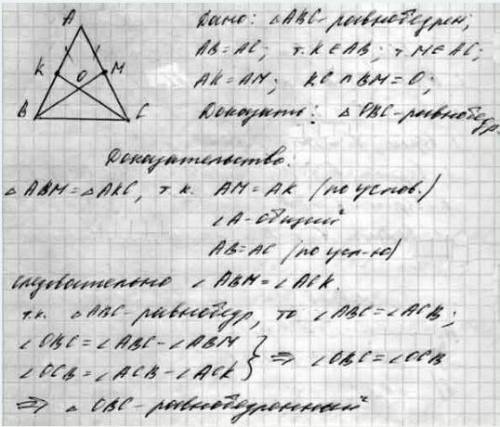 A
K
O
M
B
C
Дано: △ABC - равнобедрен;
AB=AC; т. K∈AB; т. M∈AC;
AK=AM; KC∩BM=O;
Доказать: △OBC-равнобедр.
Доказательство:
△ABM=△AKC, т.к. AM=AK (по услов.)
∠A-общий
AB=AC (по усл-ю)
следовательно ∠ABM=∠ACK.
т.к. △ABC-равнобедр, то ∠ABC=∠ACB;
∠OBC=∠ABC-∠ABM
∠OCB=∠ACB-∠ACK } ⇒ ∠OBC=∠OCB
⇒ △OBC-равнобедренный